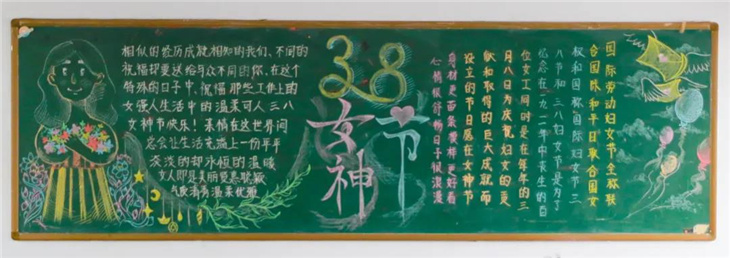 相似的经历成就相知的我们、不同的
祝福却要送给与众不同的你、在这个
特殊的日子中,祝福那些工作上的
女强人生活中的温柔可人三八
女神节快乐!亲情在这世界间
总会让生活充满上一份平平
淡淡的却永恒的温暖
女人即是美丽贤惠聪颖
气质清秀温柔优雅
38
女神节
国际劳动妇女节全称联
合国妇和平日联合国女
权和国际妇女节三
八节和三八妇女节是为了
纪念在一九一一年中丧生的百
位女工同时是在每年的三
月八日为庆祝妇女的
献和取得的巨大成就而
设立的节日愿在女神节
身材更苗条样更好看
心情极舒畅日子很浪漫